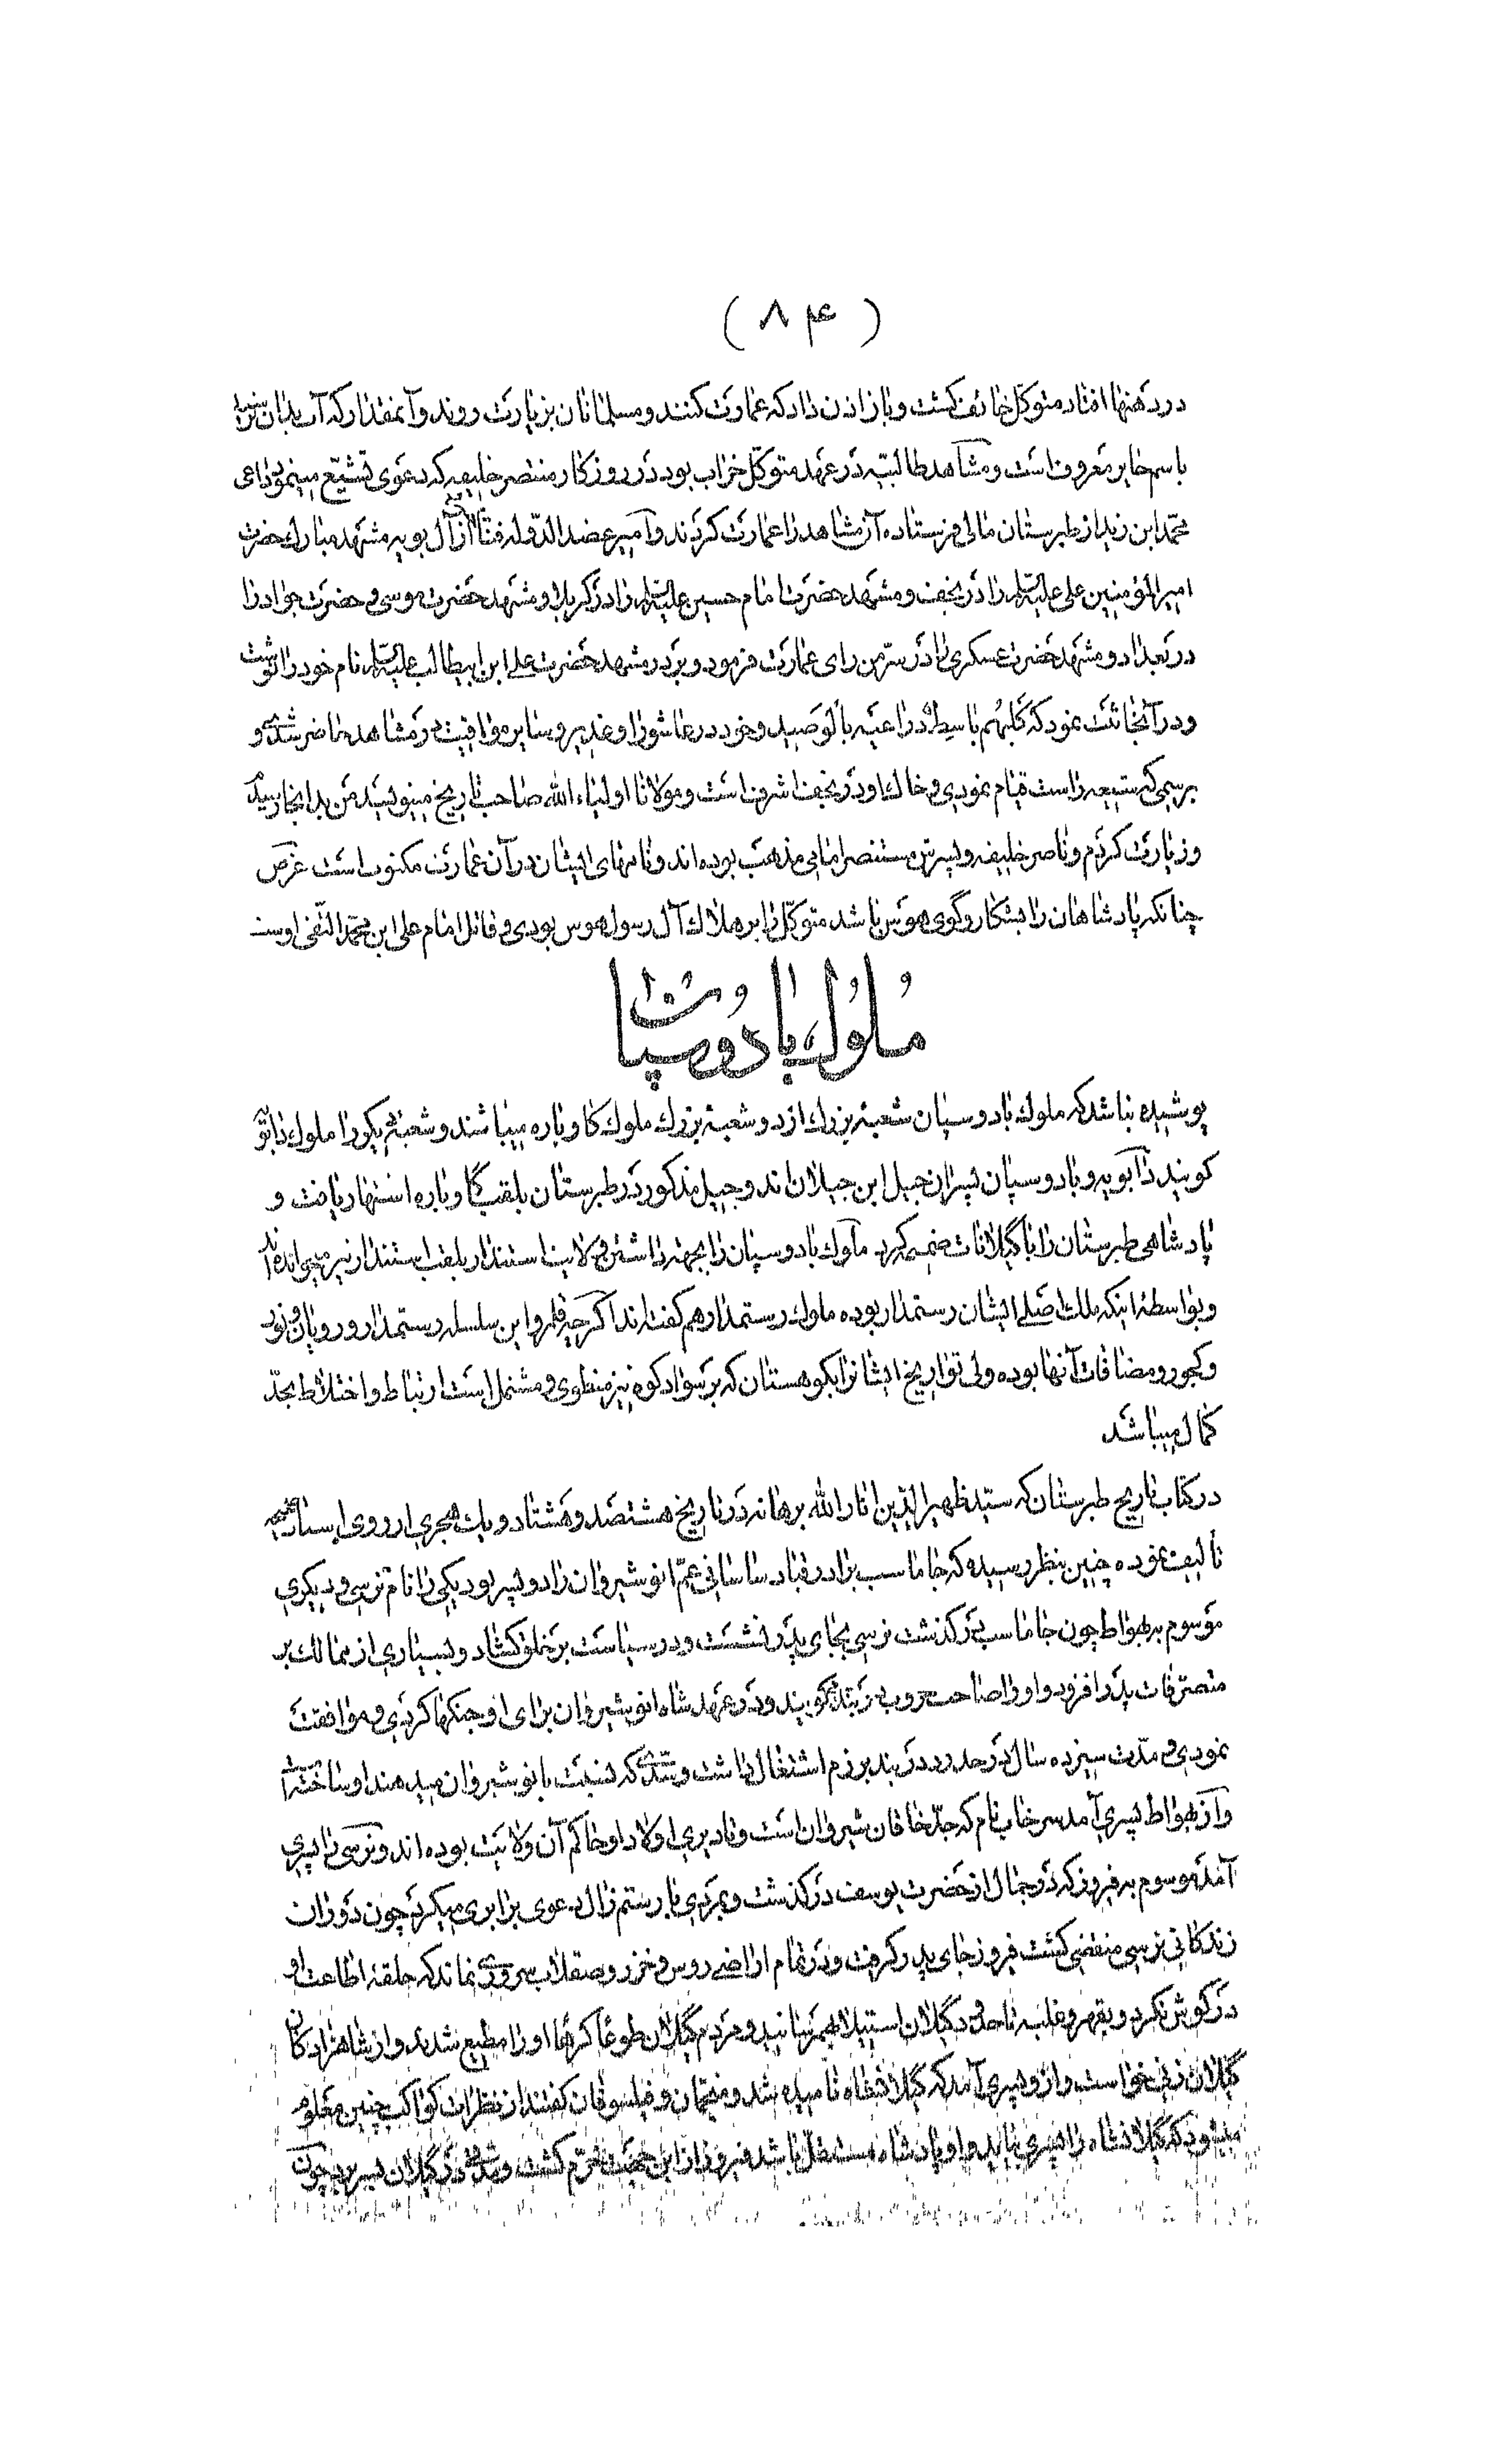 ( ۸۴ )
در دهنها افتاد متوکل خائف گشت و باز اذن داد که عمارت کنند و مسلمانان بزیارت روند و آنمقدار که آب بدان نرسید
باسم حایر معروف است و مشاهد طالبیّه در عهد متوکّل خراب بود در روزگار منتصر خلیفه که دعوی تشیّع مینمود داعی
محمّد ابن زید از طبرستان مالی فرستاده آن مشاهد را عمارت کردند و امیر عضدالدوله فنا خسرو از آل بویه مشهد مبارك حضرت
امیرالمؤمنین علی علیه السلام را در نجف و مشهد حضرت امام حسین علیه السلام را در کربلا و مشهد حضرت موسی و حضرت جواد را
در بغداد و مشهد حضرت عسکری را در سرّ من رای عمارت فرمود و بر در مشهد حضرت علی ابن ابیطالب علیه السلام نام خود را نوشت
و در آنجا ثبت نمود که کلبهم باسط ذراعیه بالوصید و خود در عاشورا و غدیر و سایر مواقیت در مشاهد حاضر شدی و
برسمی که شیعه راست قیام نمودی و خاك او در نجف اشرف است و مولانا اولیاء الله صاحب تاریخ مینویسد من بدانجا رسیدم
و زیارت کردم و ناصر خلیفه و پسرش مستنصر امامی مذهب بوده اند و نامهای ایشان در آن عمارت مکتوب است غرض
چنانکه پادشاهان را بشکار و گوی هوس باشد متوکّل را بر هلاك آل رسول هوس بودی و قاتل امام علی ابن محمّد النّقی اوست
مُلوُك بادُوسپان
پوشیده نباشد که ملوك بادوسپان شعبهٔ بزرك از دو شعبهٔ بزرك ملوك گاوباره میباشند و شعبهٔ دیگر را ملوك دابویه
گویند دابویه و بادوسپان پسران جیل ابن جیلان اند و جیل مذکور در طبرستان بلقب گاوباره اشتهار یافت و
پادشاهی طبرستان را با گیلانات ضمیمه کرد ملوك بادوسپان را بجهة داشتن ولایت استندار بلقب استندار نیز میخوانده اند
و بواسطهٔ اینکه ملك اصلی ایشان رستمدار بوده ملوك رستمدار هم گفته اند اگرچه قلمرو این سلسله رستمدار و رویان و نور
و کجور و مضافات آنها بوده ولی تواریخ ایشانرا بکوهستان که بر سوادکوه نیز منطوی و مشتمل است ارتباط و اختلاط بحدّ
کمال میباشد
در کتاب تاریخ طبرستان که سیّد ظهیرالدّین انار الله برهانه در تاریخ هشتصد و هشتاد و یك هجری از روی اسناد
تألیف نموده چنین بنظر رسیده که جاماسب برادر قباد ساسانی عمّ انوشیروان را دو پسر بود یکی را نام نرسی و دیگری
موسوم به بهواط چون جاماسب در گذشت نرسی بجای پدر نشست و در سیاست بر خلق گشاد و بسیاری از ممالك بر
متصرّفات پدر افزود و او را صاحب حروب دربند گویند و در عهد شاه انوشیروان برای او جنگها کردی و موافقت
نمودی و مدّت سیزده سال در حدود دربند برزم اشتغال داشت و سدّی که نسبت بانوشیروان میدهند او ساخته است
و از بهواط پسری آمد سرخاب نام که جدّ خاقان شیروان است و تا دیری اولاد او حاکم آن ولایت بوده اند و نرسی را پسری
آمد موسوم به فیروز که در جمال از حضرت یوسف در گذشت و بمردی با رستم زال دعوی برابری میکرد چون دوران
زندگانی نرسی منقضی گشت فیروز جای پدر گرفت و در تمام اراضی روس و خزر و صقلاب سروری نماند که حلقهٔ اطاعت او
در گوش نکرد و بقهر و غلبه تا حدود گیلان استیلا بهمرسانید و مردم گیلان طوعا کرها او را مطیع شدند و از شاهزادگان
گیلان زنی خواست و از و پسری آمد که گیلانشاه نامیده شد و منجّمان و فیلسوفان گفتند از نظرات کواکب چنین معلوم
میشود که گیلانشاه را پسری بیاید و او پادشاه مستقل باشد فیروز از این جهت خرّم گشت و مدّتی در گیلان بسر برد چون